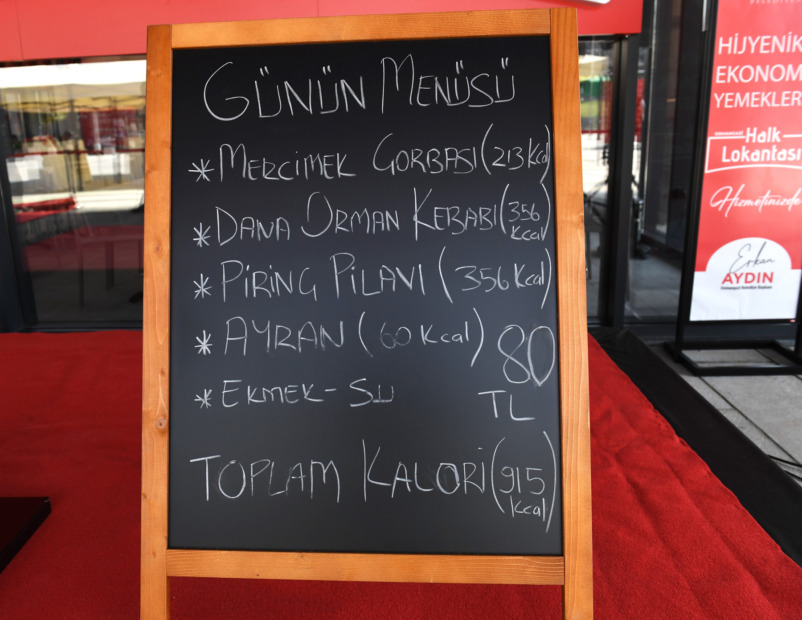 GÜNÜN MENÜSÜ
* MERCİMEK ÇORBASI (213 Kcal)
* DANA ORMAN KEBABI (356 Kcal)
* PİRİNÇ PİLAVI (356 Kcal)
* AYRAN (60 Kcal)
80 TL
* EKMEK - SU
TOPLAM KALORİ (915 Kcal)
HİJYENİK
EKONOM
YEMEKLER
Halk
Lokantası
Hizmetinizde
Erkan
AYDIN